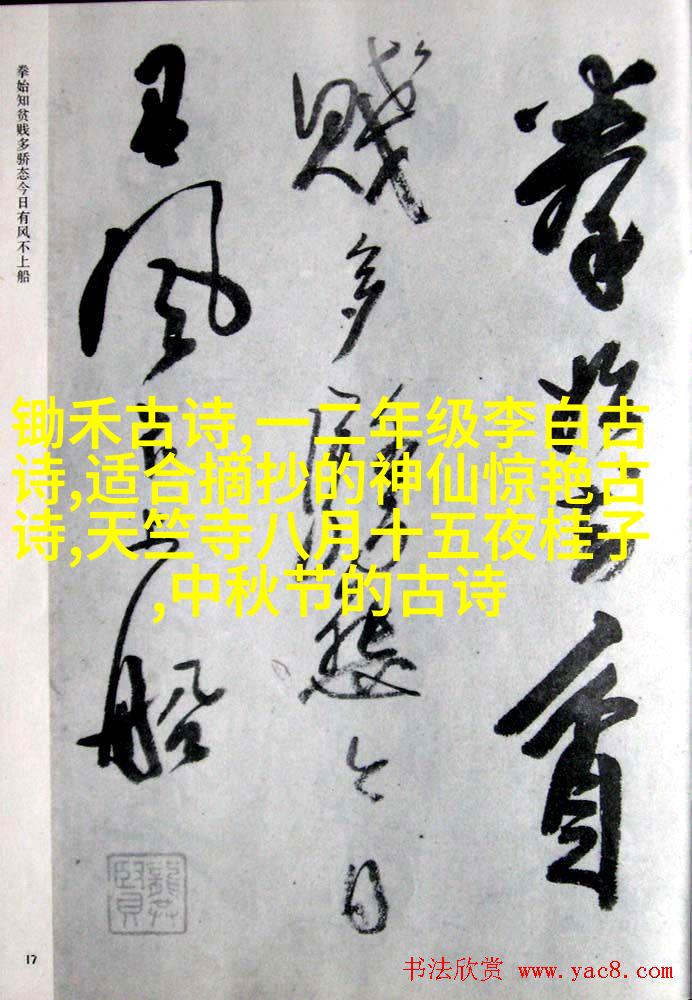 拳始知贫贱多骄态今日有风不上船
拳始知貧
賤多驕態今日
有風不上船
锄禾古诗,一二年级李白古
诗,适合摘抄的神仙惊艳古
诗,天竺寺八月十五夜桂子
,中秋节的古诗
17
书法欣赏 www.yac8.com